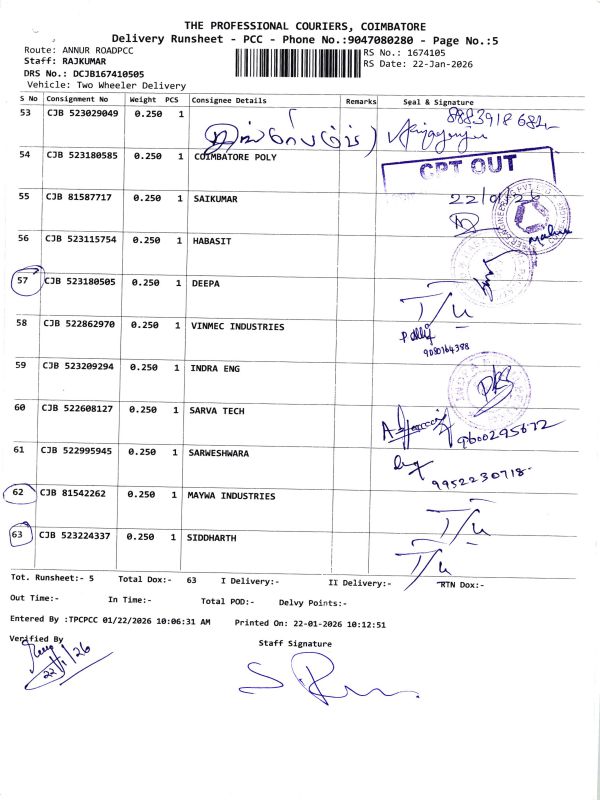 THE PROFESSIONAL COURIERS, COIMBATORE
Delivery Runsheet - PCC - Phone No.:9047080280 - Page No.:5
Route: ANNUR ROADPCC
RS No.: 1674105
Staff: RAJKUMAR
RS Date: 22-Jan-2026
DRS No.: DCJB167410505
Vehicle: Two Wheeler Delivery
S No Consignment No Weight PCS Consignee Details Remarks Seal & Signature
53 CJB 523029049 0.250 1
54 CJB 523180585 0.250 1 COIMBATORE POLY
CPT OUT
55 CJB 81587717 0.250 1 SAIKUMAR 22/01/26
56 CJB 523115754 0.250 1 HABASIT
57 CJB 523180505 0.250 1 DEEPA T/u
58 CJB 522862970 0.250 1 VINMEC INDUSTRIES
9080164388
59 CJB 523209294 0.250 1 INDRA ENG
60 CJB 522608127 0.250 1 SARVA TECH 9600295672
61 CJB 522995945 0.250 1 SARWESHWARA 9952230718
62 CJB 81542262 0.250 1 MAYWA INDUSTRIES T/u
63 CJB 523224337 0.250 1 SIDDHARTH T/u
Tot. Runsheet:- 5 Total Dox:- 63 I Delivery:- II Delivery:- RTN Dox:-
Out Time:- In Time:- Total POD:- Delvy Points:-
Entered By :TPCPCC 01/22/2026 10:06:31 AM Printed On: 22-01-2026 10:12:51
Verified By Staff Signature
22/1/26